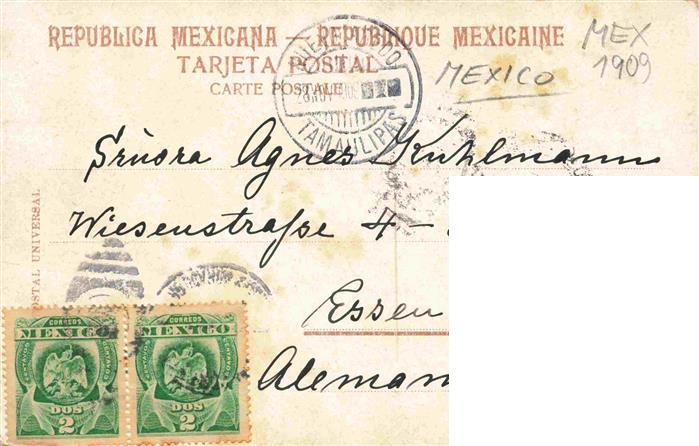 REPUBLICA MEXICANA — REPUBLIQUE MEXICAINE
TARJETA POSTAL
CARTE POSTALE
MEX
1909
MEXICO
TAMAULIPAS
Señora Agnes Kuhlmann
Wiesenstraße 4-
Essen
POSTAL UNIVERSAL
CORREOS
MEXICO
CENTAVOS
CENTAVOS
DOS
2
CORREOS
MEXICO
CENTAVOS
CENTAVOS
DOS
2